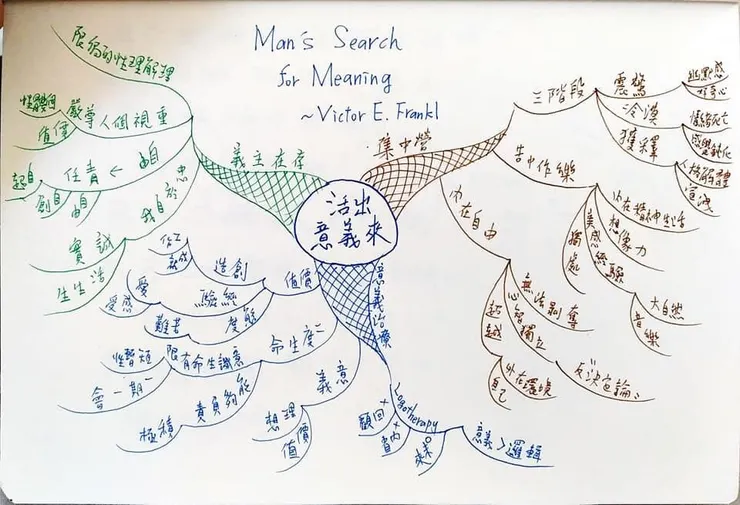 Man's Search
for Meaning
~Victor E. Frankl
活出
意義來
集中營
三階段
震驚
幽默感
好奇心
冷漠
情緒死亡
感覺鈍化
獲釋
人格解體
宣洩
苦中作樂
內在精神生活
想像力
美感經驗
大自然
音樂
獨處
內在自由
無法剝奪
心智獨立
超越
外在環境
自己
反決定論
意義治療
Logotherapy
意義>邏輯
未來○
內省×
回顧×
意義
理想
價值
生命二度
意識生命有限
短暫性
一期一會
能夠負責
積極
價值
創造
成就
經驗
愛
感受
態度
苦難
存在主義
理解理性的侷限
重視個人尊嚴
個體性
價值
自由→責任
自由
自創
自超
忠於自我
誠實
活生生